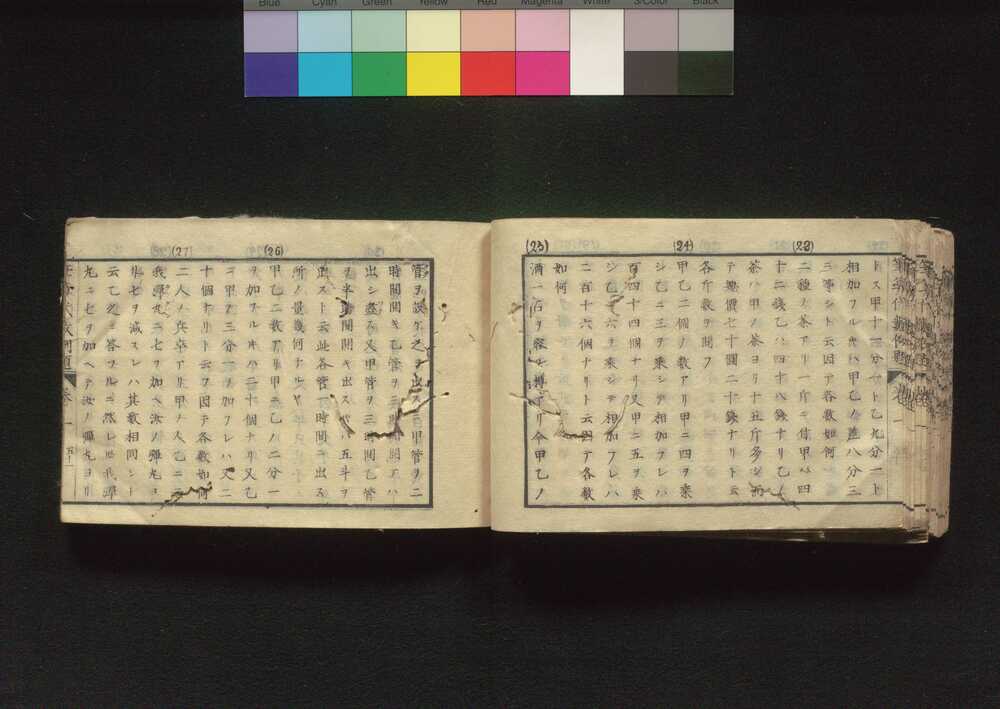 Blue Cyan Green Yellow Red Magenta White 3/Color Black
(23) (24) (25)
トス甲十一分一ト乙九分一ト
相加フル𪜈ハ甲乙ノ差八分三
三等シト云因テ各数如何
二種ノ茶アリ一斤ニ付甲ハ四
十二錢乙ハ四十八錢ナリ乙ノ
茶ハ甲ノ茶ヨリ十五斤多シ而
テ總價七十圓二十錢ナリト云
各斤數ヲ問フ
甲乙二個ノ數アリ甲ニ四ヲ乘
シ乙ニ三ヲ乘シテ相加フレハ
百四十四個ナリ又甲ニ五ヲ乘
シ乙ニ六ヲ乘シテ相加フレハ
二百十六個ナリト云因テ各數
如何
滿一石ヲ容ル樽アリ今甲乙ノ
(26) (27)
管ヲ設ケ之ヲ出スニ甲管ヲ二
時間開キ乙管ヲ三時間開
出シ盡ス又甲管ヲ三時間乙管
ヲ半時間開キ出ス𪜈ハ五斗ヲ
出スト云此各管一時間ニ出ス
所ノ量幾何ナルヤ
甲乙二數アリ甲ニ乙ノ二分一
ヲ加フル𪜈ハ二十個ナリ又乙
ニ甲ノ三分一ヲ加フレハ又二
十個ナリト云フ因テ各數如何
二人ノ兵卒アリ甲ノ人乙ニ云
我彈丸ニ七ヲ加ヘ汝ノ彈丸ヨ
リ七ヲ減スレハ其數相同シト
云乙之ニ答フルニ然レ𪜈我彈
丸ニ七ヲ加ヘテ汝ノ彈丸ヨリ